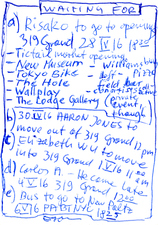 WAITING FOR
a) Risako to go to opening
319 Grand 28 IV 16 1800
Tictail market opening
- New Museum - Williamsburg
- Tokyo Bike - loft - Pizza
- The Hole
- Wallplay
- The Lodge Gallery (private event
b) 30 IV 16 AARON JONES to
move out of 319 Grand 11 pm
c) Elizabeth WU to move
into 319 Grand 1 V 16 11
d) Carlos A - He come late
4 V 16 319 Grand
e) Bus to go to New Paltz
6 V 16 PABT NY